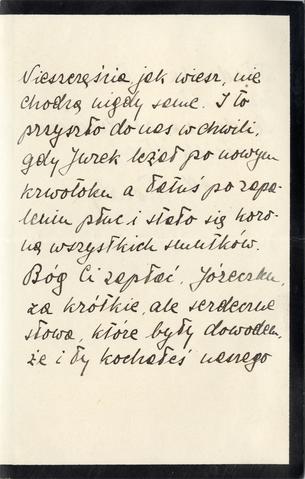 Nieszczęścia jak wiesz, nie
chodzą nigdy same. I to
przyszło do nas w chwili,
gdy Jurek leżał po nowym
krwotoku a Tatuś po zapa-
leniu płuc i stało się koro-
ną wszystkich smutków.
Bóg Ci zapłać, Józeczku,
za krótkie, ale serdeczne
słowa, które były dowodem,
że i Ty kochałeś naszego